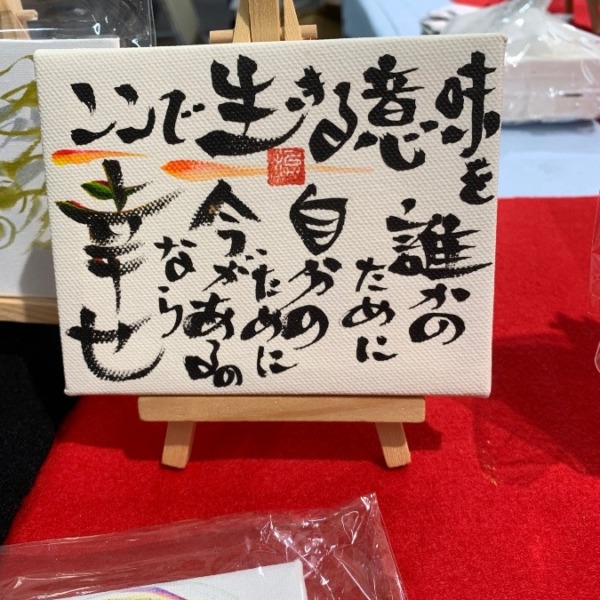 ここで生きる意味を
誰かの
ために
自分の
ために
今、があるの
なら
幸せ